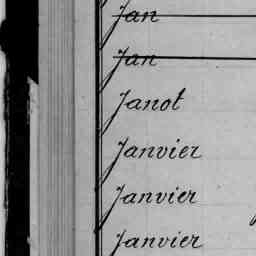 Jan
Jan
Janot
Janvier
Janvier
Janvier